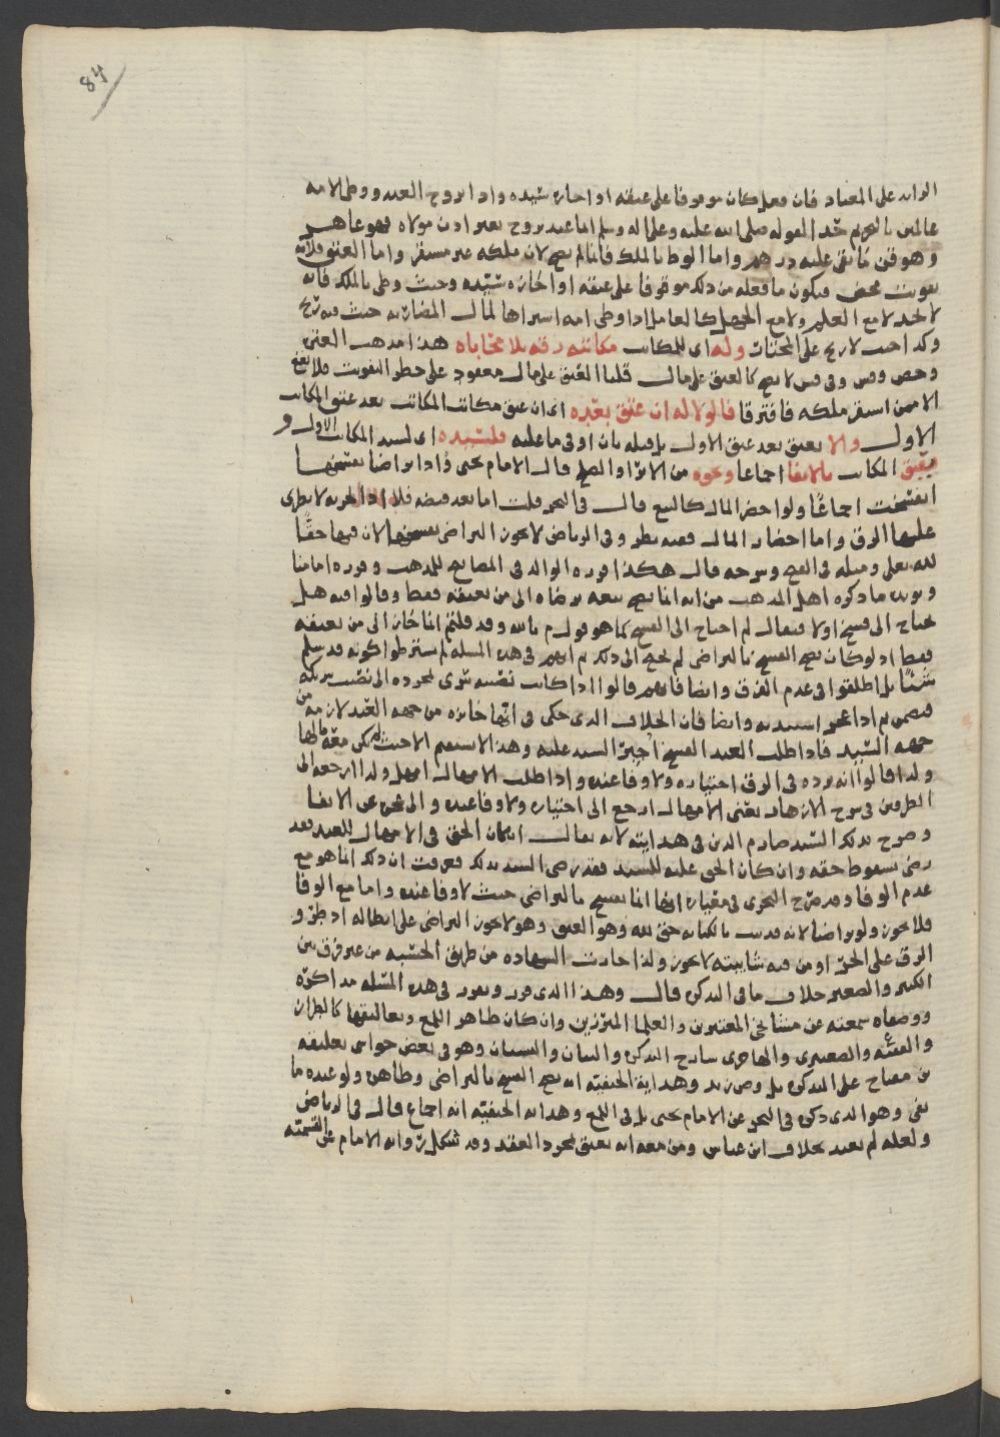 84
الزايد على المعتاد فان فعل كان موقوفا على عتقه او اجازه سيده واذا تزوج العبد ووطى الامه
عالمين بالتحريم حد لقوله صلى الله عليه وعلى اله وسلم ايما عبد تزوج بغير اذن مولاه فهو عاهر
وهو قن ما بقى عليه درهم واما الوطا بالملك فانما لم يصح لان ملكه غير مستقر واما العتق فلانه
تفويت محض فيكون ما فعله من ذلك موقوفا على عتقه او اجازه سيده وحيث وطى بالملك فانه
لا يحد لا مع العلم ولا مع الجهل كالعامل اذا وطى امه اشتراها لمال المضاربه حيث فيه ربح
وله اى للمكاتب مكاتبه رقه بلا محاباه هذا مذهب العتره
لا يصح كالعتق على مال قلنا العتق على مال معقود على خطر التفويت فلا يصح
الا ممن استقر ملكه فافترقا فالولا له ان عتق بعده اى ان عتق مكاتب المكاتب بعد عتق المكاتب
الاول والا يعتق بعد عتق الاول بل قبله بان اوفى ما عليه فلسيده اى لسيد المكاتب الاول و
يعتق المكاتب بالايفا اجماعا ونحوه من الابرا والصلح قال الامام يحيى واذا تراضيا بفسخها
انفسخت اجماعًا ولو احضر المال كالبيع قال فى البحر قلت اما بعد قبضه فلا اذ الحريه لا يطرى
عليها الرق واما احضار المال ففيه نظر وفى الرياض لا يجوز التراضى بفسخها لان فيها حقًا
لله تعلى ومثله فى الفتح وشرحه قال هكذا قرره الوالد فى المصابيح للمذهب وقرره امامنا
ما ذكره اهل المذهب من انه انما يصح بيعه برضاه الى من يعتقه فقط وقالوا فيه هل
يحتاج الى فسخ اولا فيقال لم احتاج الى الفسخ كما هو قول م بالله وقد قلتم انما جاز الى من يعتقه
فقط اذ لو كان يصح الفسخ بالتراضى لم يحتج الى ذلك ثم انهم فى هذه المسله لم يشترطوا كونه قد سلم
شيًا بل اطلقوا فى عدم الفرق وايضا فانهم قالوا اذا كاتب نفسه
وايضا فان الخلاف الذى حكى فى انها جائزه من جهه العبد لازمه من
جهه السيد فاذا طلب العبد الفسخ اجبر السيد عليه وهذا لا يستقيم الا حيث لم يكن معه مالها
ولذا قالوا انه يرده فى الرق اختياره ولا وفا عنده واذا طلب الامهال امهل ولذا ارجعه الى
الطرفين فى شرح الازهار يعنى الامهال ارجع الى اختياره ولا وفا عنده والى عجزه عن الايفا
وصرح بذلك السيد صارم الدين فى هدايته لانه يقال ان كان الحق فى الامهال للعبد فقد
رضى بسقوط حقه وان كان الحق عليه للسيد فقد رضى السيد بذلك فعرفت ان ذلك انما هو مع
عدم الوفا وقد صرح البحرى فى معياره انها انما تنفسخ بالتراضى حيث لا وفا عنده واما مع الوفا
فلا يجوز ولو تراضيا لانه قد ثبت بالكتابه حق لله وهو العتق وهو لا يجوز التراضى على ابطاله اذ طرو
الرق على الحر او من فيه شايبته لا يجوز ولذا جازت الشهاده من طريق الحسبه من غير فرق بين
الكبير والصغير خلاف ما فى التذكره قال وهذا الذى قرر ويقرر فى هذه المسئله مذاكره
سمعته عن مشائخى المعتبرين والعلما المبرزين وان كان ظاهر اللمع وتعاليقها كالظران
والصعيترى والهاجرى شارح التذكره والبيان والبستان وهو فى بعض حواشى تعليقه
بن مفتاح على التذكره بل وهدايه الحنفيه انه يصح الفسخ بالتراضى وظاهره ولو عنده ما
يفى وهو الذى ذكره فى البحر عن الامام يحيى بل فى اللمع وهدايه الحنفيه انه اجماع قال فى الرياض
ولعله لم يعتد بخلاف ابن عباس ومن معه انه يعتق بمجرد العقد وقد